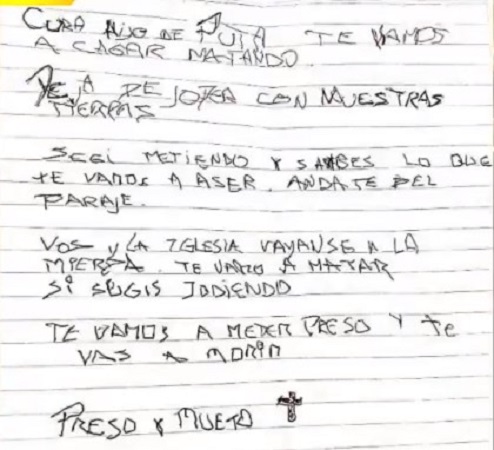 CURA HIJO DE PUTA TE VAMOS
A CAGAR MATANDO
DEJA DE JODER CON NUESTRAS
TIERRAS
SEGI METIENDO Y SAVBES LO QUE
TE VAMOS A ASER. ANDATE DEL
PARAJE.
VOS Y LA IGLESIA VAYANSE A LA
MIERDA. TE VAMO A MATAR
SI SEGIS JODIENDO
TE VAMOS A METER PRESO Y te
VAS A MORIR
PRESO Y MUETO